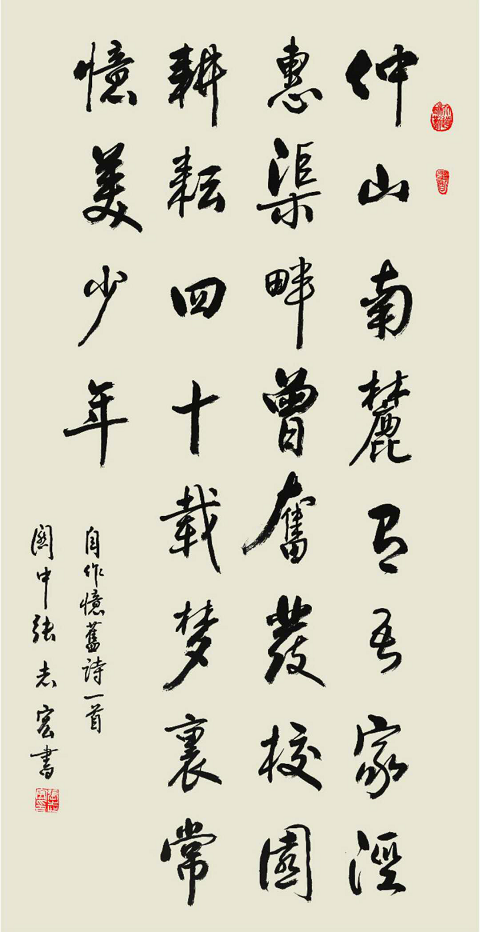 仲山南麓是吾家涇
惠渠畔曾奮發校園
耕耘四十載梦裏常
憶美少年
自作憶舊詩一首
関中張志宏書